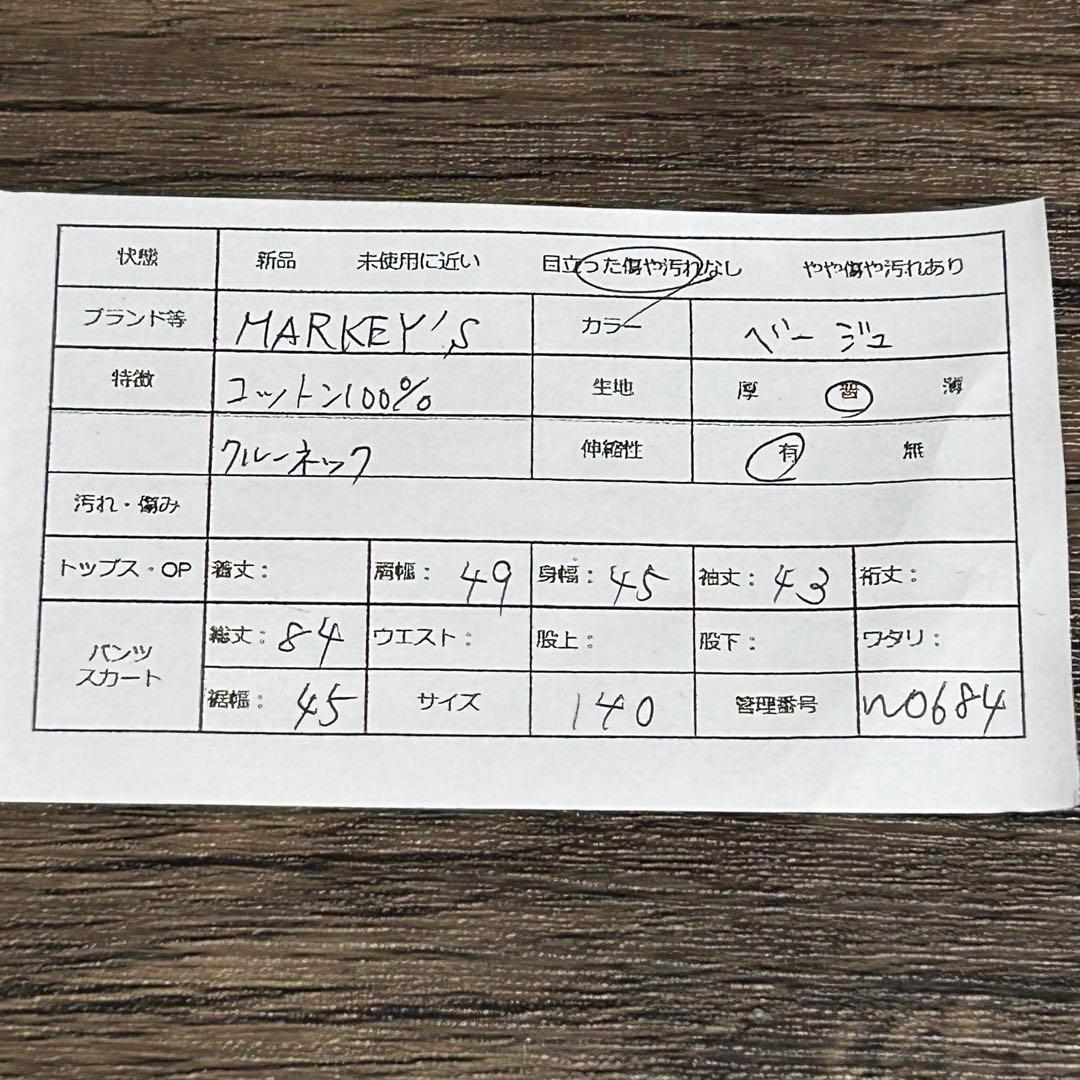 状態 新品 未使用に近い 目立った傷や汚れなし やや傷や汚れあり
ブランド等 MARKEY'S カラー ベージュ
特徴 コットン100% 生地 厚 普 薄
クルーネック 伸縮性 有 無
汚れ・傷み
トップス・OP 着丈: 肩幅: 49 身幅: 45 袖丈: 43 裄丈:
パンツ スカート 総丈: 84 ウエスト: 股上: 股下: ワタリ:
裾幅: 45 サイズ 140 管理番号 n0684